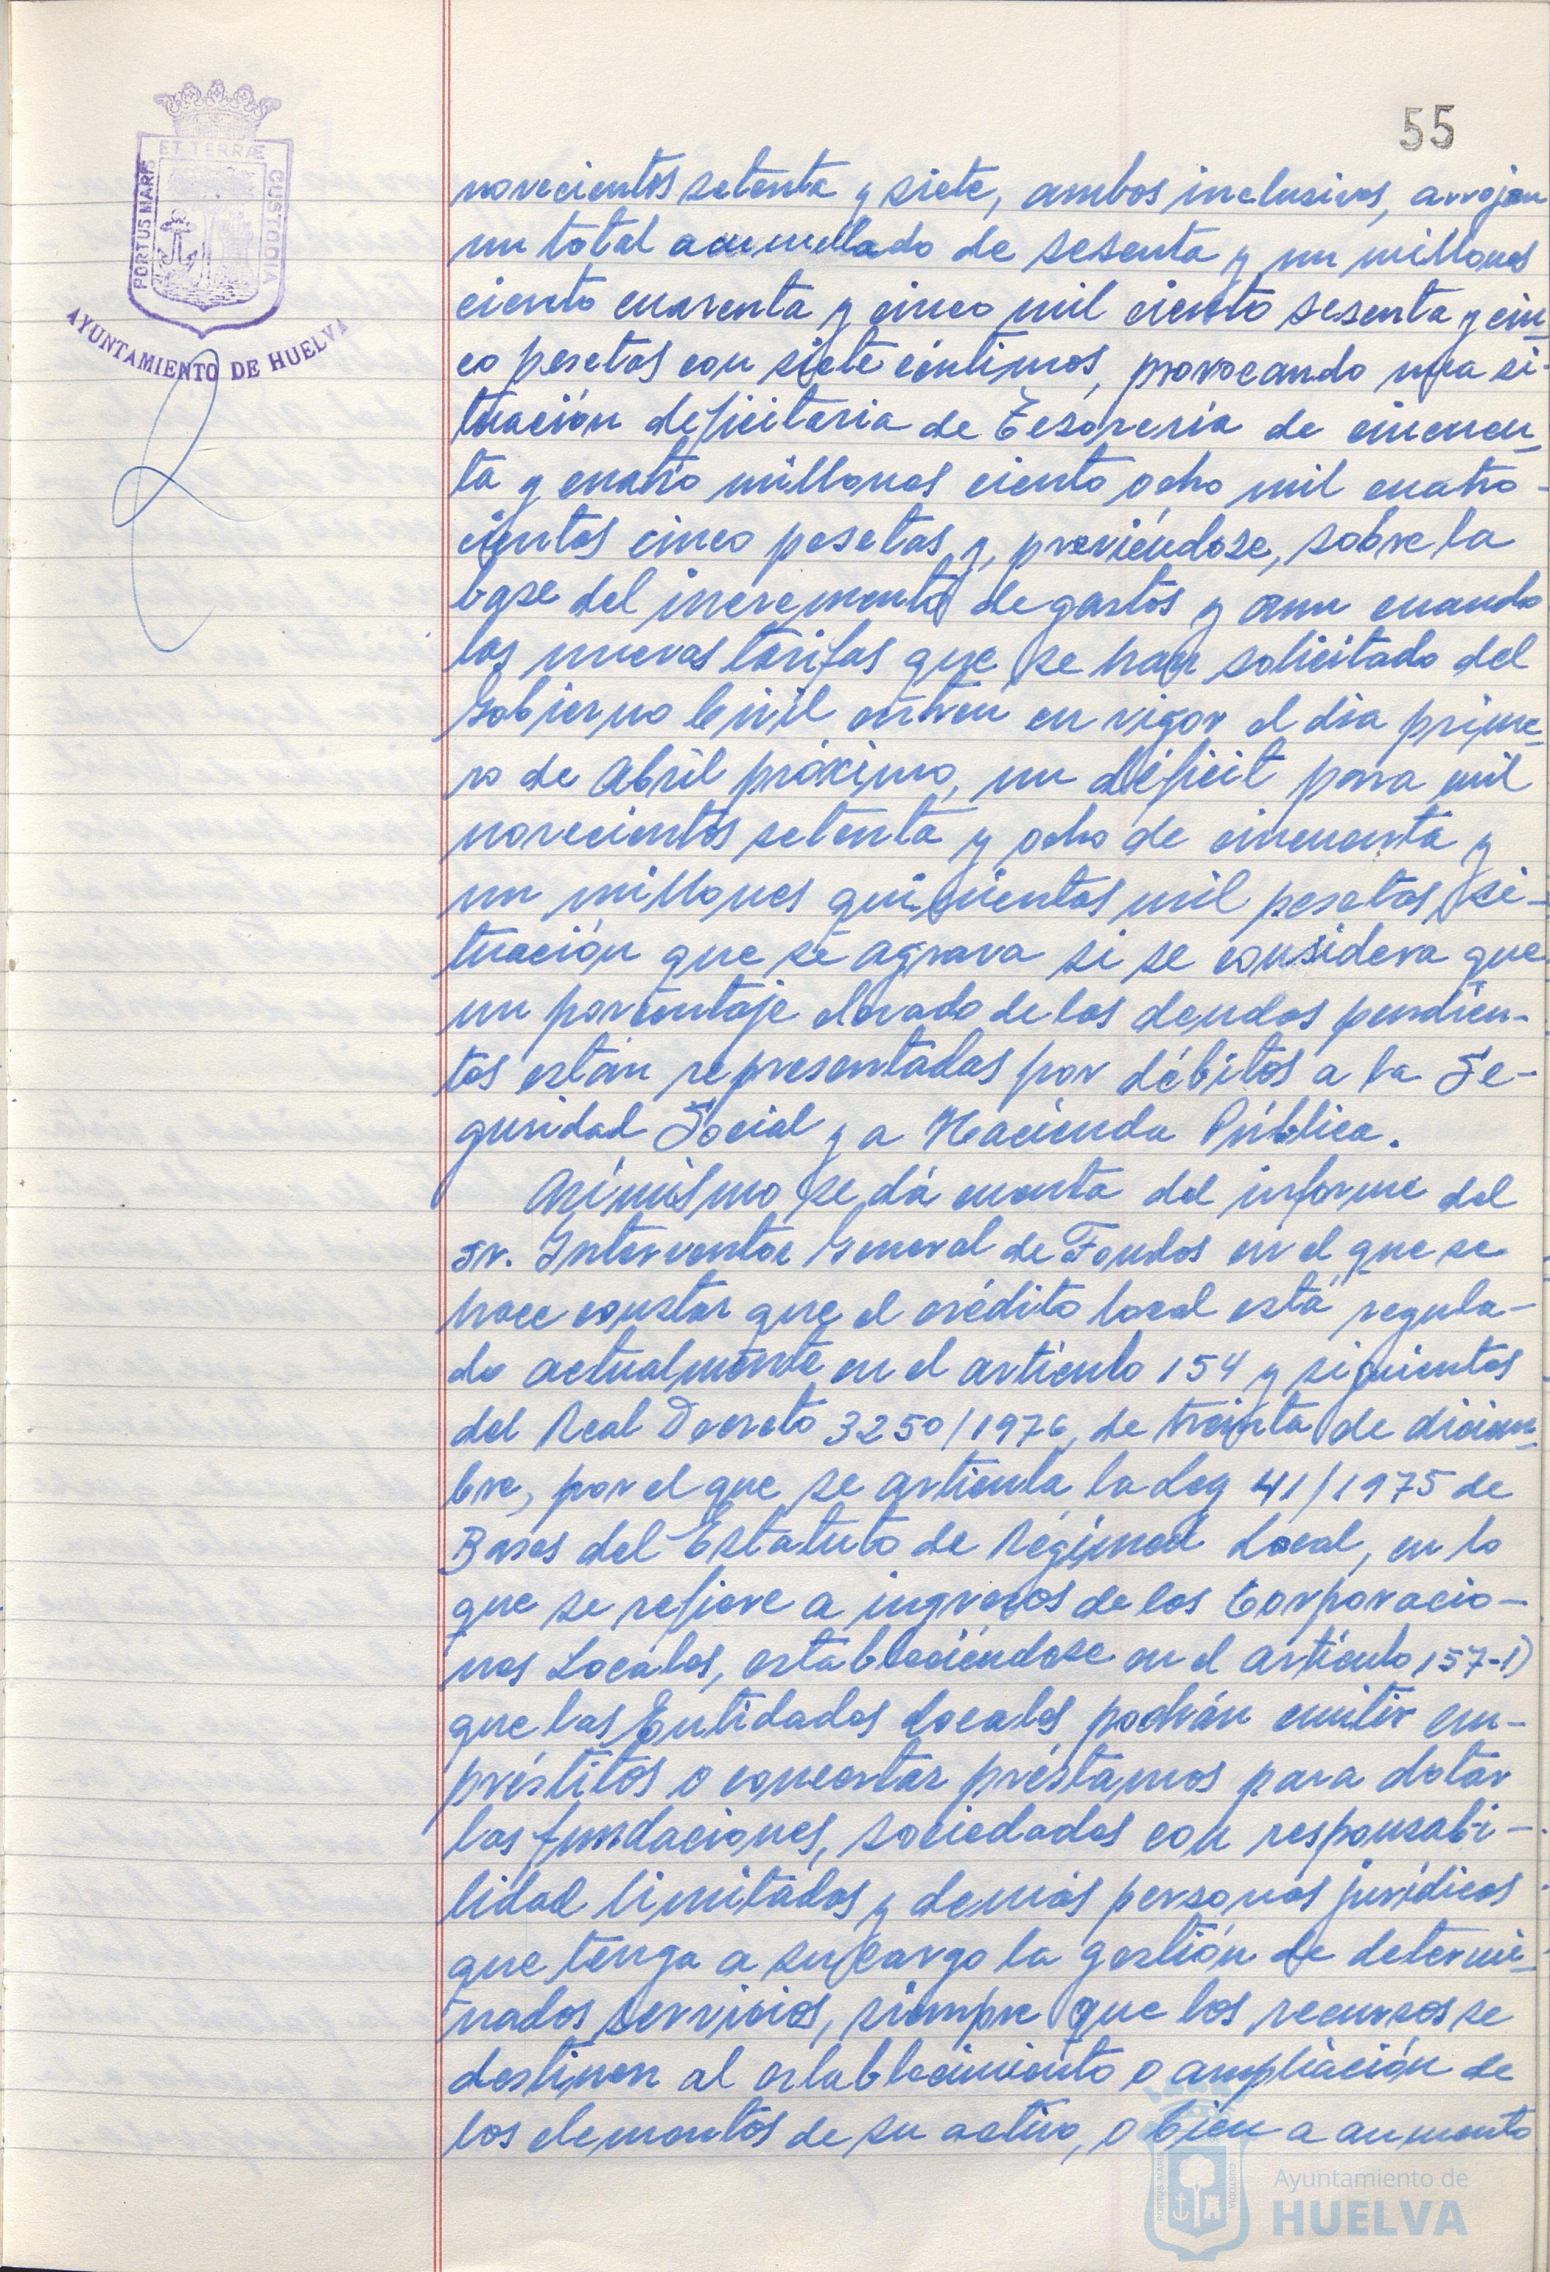 55
ET TERRÆ
PORTUS MARIS
CUSTODIA
AYUNTAMIENTO DE HUELVA
novecientos setenta y siete, ambos inclusives, arrojan
un total acumulado de sesenta y un millones
ciento cuarenta y cinco mil ciento sesenta y cin-
co pesetas con siete céntimos, provocando una si-
tuación deficitaria de Tesorería de cincuen-
ta y cuatro millones ciento ocho mil cuatro-
cientas cinco pesetas y, previéndose, sobre la
base del incremento de gastos y aun cuando
las nuevas tarifas que se han solicitado del
Gobierno Civil entren en vigor el día prime-
ro de Abril próximo, un déficit para mil
novecientos setenta y ocho de cincuenta y
un millones quinientas mil pesetas, si-
tuación que se agrava si se considera que
un porcentaje elevado de las deudas pendien-
tes están representadas por débitos a la Se-
guridad Social y a Hacienda Pública.
Asimismo se dá cuenta del informe del
Sr. Interventor General de Fondos en el que se
hace constar que el crédito local está regula-
do actualmente en el artículo 154 y siguientes
del Real Decreto 3250/1976, de treinta de diciem-
bre, por el que se articula la Ley 41/1975 de
Bases del Estatuto de Régimen Local, en lo
que se refiere a ingresos de las Corporacio-
nes Locales, estableciéndose en el artículo 157-1)
que las Entidades Locales podrán emitir em-
préstitos o concertar préstamos para dotar
las fundaciones, sociedades con responsabi-
lidad limitadas y demás personas jurídicas
que tenga a su cargo la gestión de determi-
nados servicios, siempre que los recursos se
destinen al establecimiento o ampliación de
los elementos de su activo, o bien a aumento
PORTUS MARIS
CUSTODIA
Ayuntamiento de
HUELVA